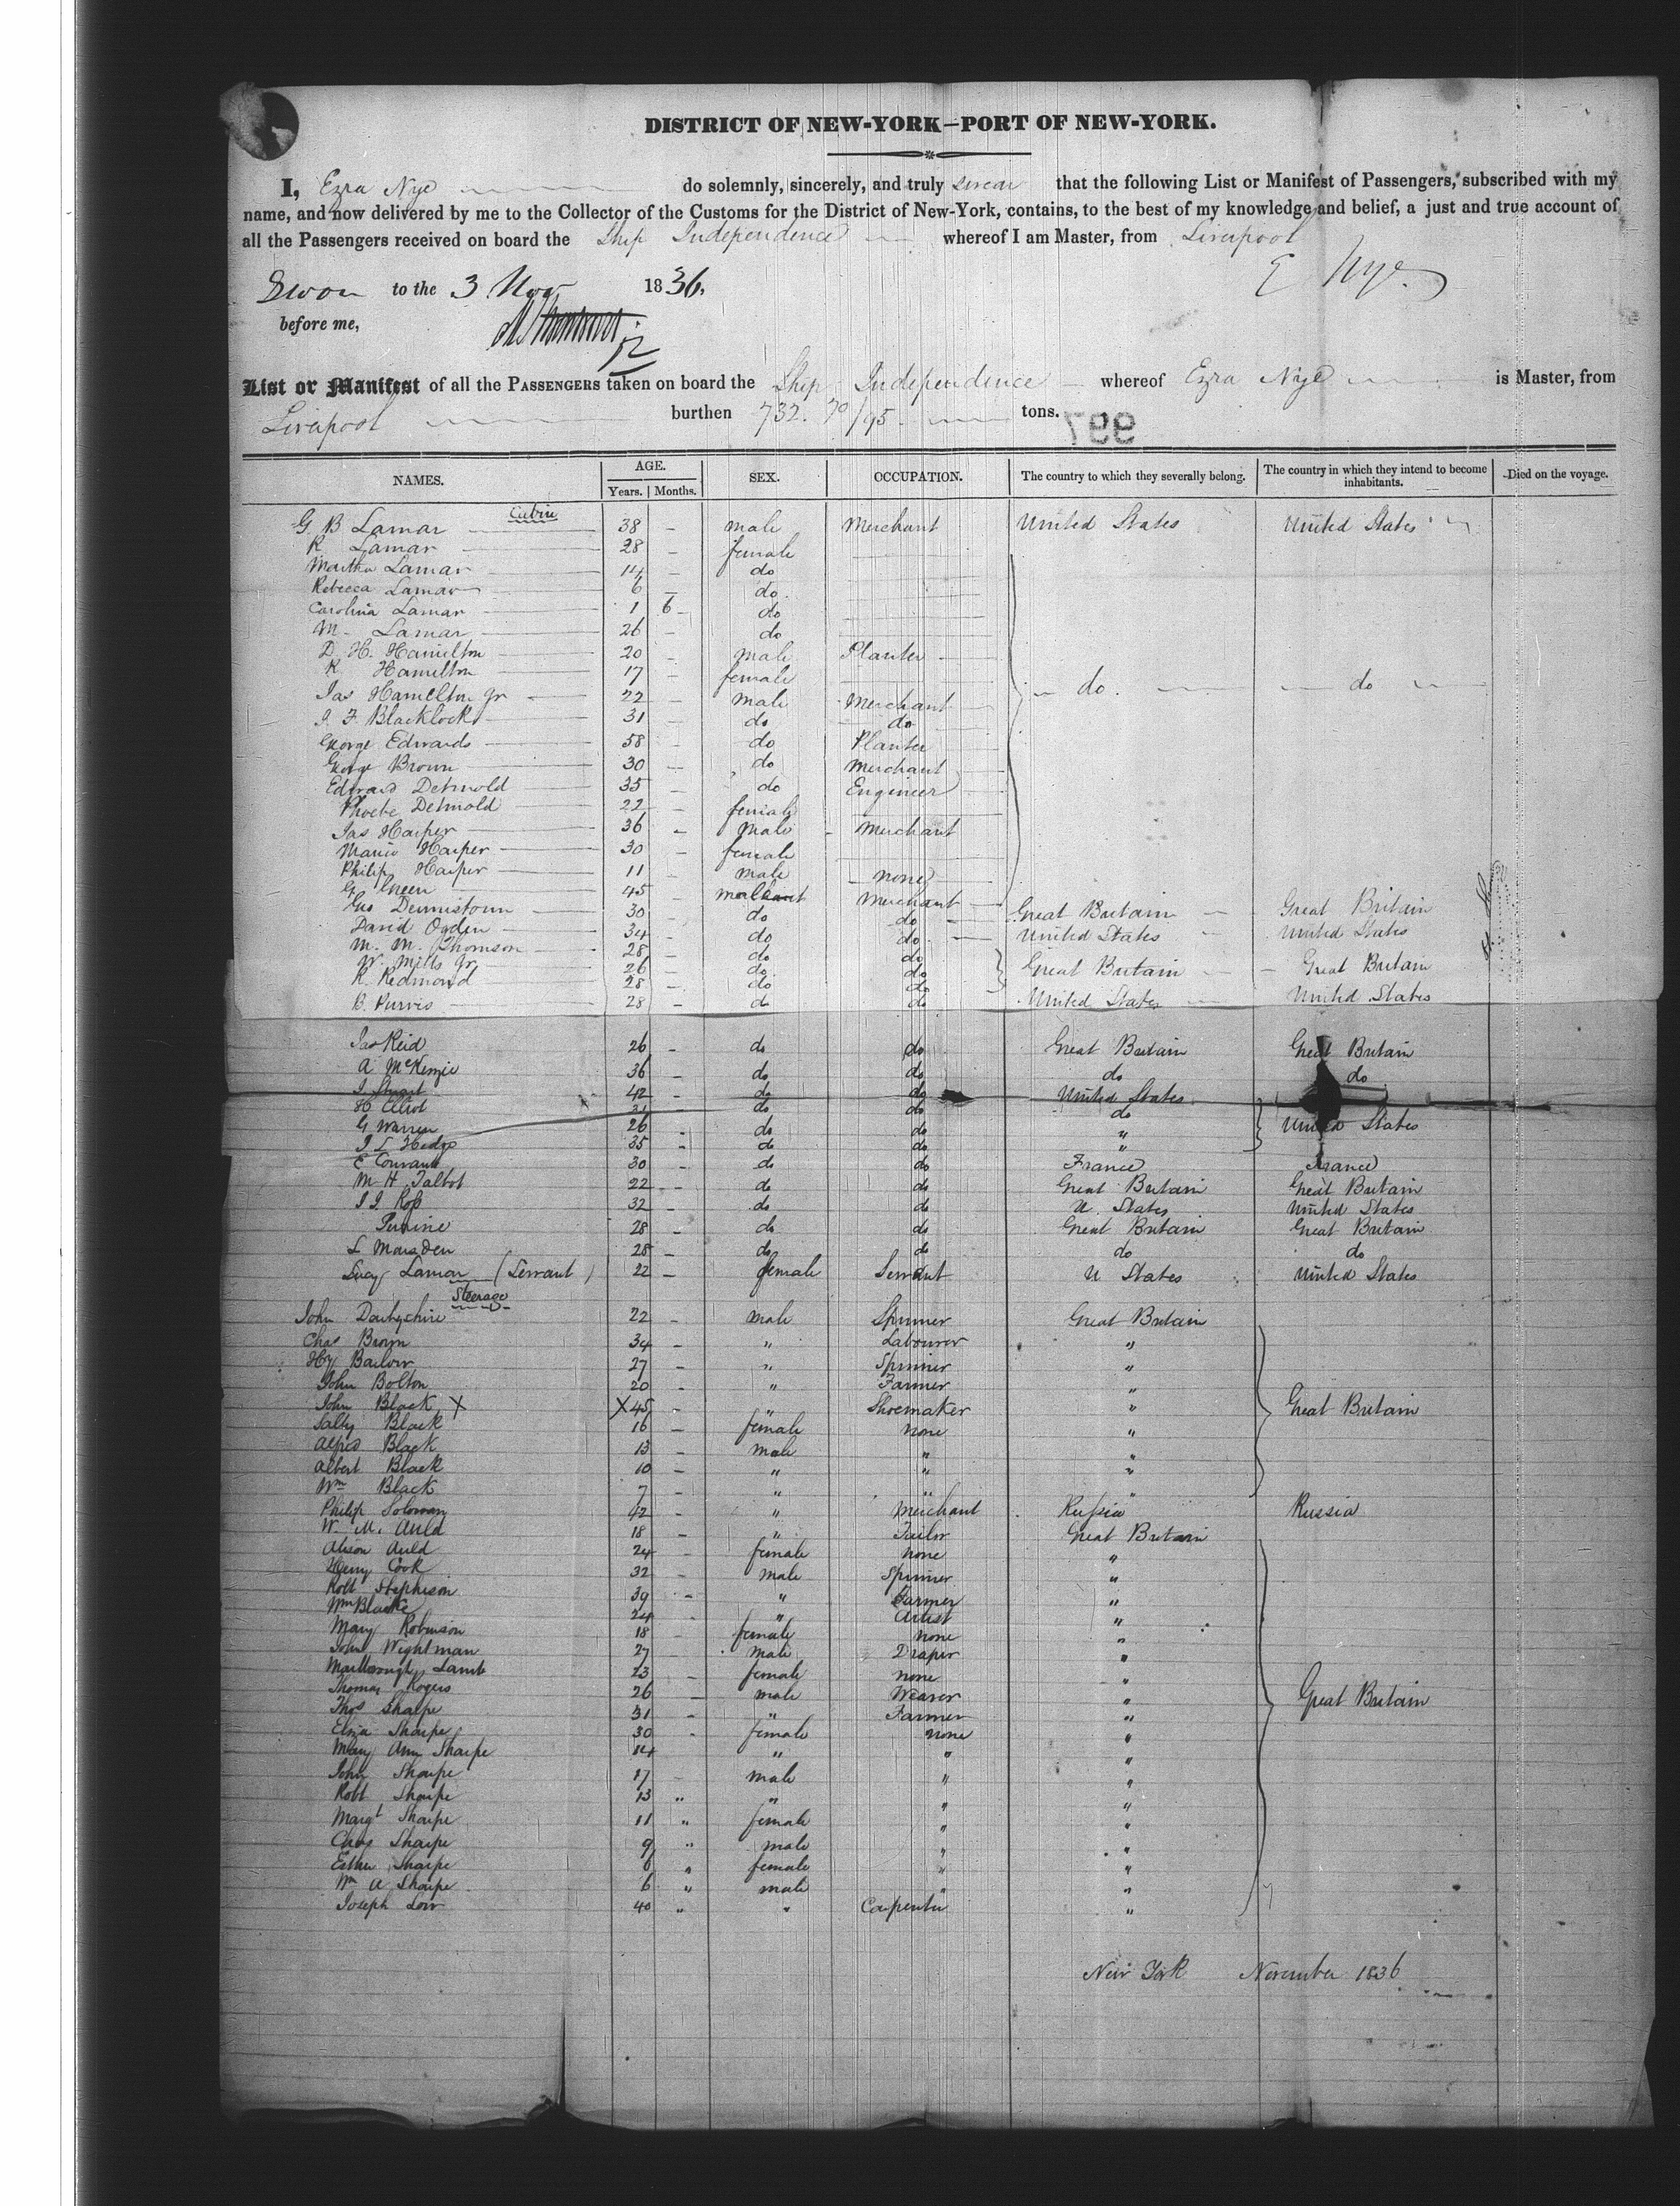 DISTRICT OF NEW-YORK—PORT OF NEW-YORK.
I, Ezra Nye do solemnly, sincerely, and truly swear that the following List or Manifest of Passengers, subscribed with my
name, and now delivered by me to the Collector of the Customs for the District of New-York, contains, to the best of my knowledge and belief, a just and true account of
all the Passengers received on board the Ship Independence whereof I am Master, from Liverpool
Swon to the 3 Nov 1836. E Nye
before me,
List or Manifest of all the PASSENGERS taken on board the Ship Independence whereof Ezra Nye is Master, from
Liverpool burthen 732. 70/95 tons.
997
NAMES. AGE. Years. Months. SEX. OCCUPATION. The country to which they severally belong. The country in which they intend to become inhabitants. Died on the voyage.
Cabin
G. B Lamar 38 - male Merchant United States United States
R Lamar 28 - female
Martha Lamar 14 - do
Rebecca Lamar 6 - do.
Carolina Lamar 1 6 do
M. Lamar 26 - do
D. H. Hamilton 20 - male Planter
R Hamilton 17 - female
Jas Hamilton Jr 22 - male Merchant do. do
J. F. Blacklock 31 - do do
George Edwards 58 - do Planter
George Brown 30 - do Merchant
Edward Detmold 35 - do Engineer
Phoebe Detmold 22 - female
Jas Harper 36 - male Merchant
Maria Harper 30 - female
Philip Harper 11 - male none
G Green 45 - Merchant
Geo Dennistoun 30 - do do Great Britain Great Britain
David Ogden 34 - do do United States United States
M. M. Thomson 28 - do do
W. Mills Jr 26 - do do Great Britain Great Britain
R. Redmond 28 - do do
B. Purvis 28 - do do United States United States
Jas Reid 26 - do do Great Britain Great Britain
A McKenzie 36 - do do do do
J. Stuart 42 - do do United States
H Elliot do do do
G Warren 26 - do do " United States
J L Hedge 35 - do do "
E Courant 30 - do do France France
M H Talbot 22 - do do Great Britain Great Britain
J J. Ross 32 - do do U. States United States
Perrine 28 - do do Great Britain Great Britain
L Marsden 28 - do do do do
Lucy Lamar (Servant) 22 - female Servant U States United States
Steerage
John Darbyshire 22 - male Spinner Great Britain
Chas Brown 34 - " Labourer "
Hy Barlow 27 - " Spinner "
John Bolton 20 - " Farmer "
John Black X X 45 - " Shoemaker " Great Britain
Sally Black 16 - female none "
Alfred Black 13 - male " "
Albert Black 10 - " " "
Wm Black 7 - " " "
Philip Solomon 42 - " Merchant Russia Russia
W. M. Auld 18 - " Tailor Great Britain
Alison Auld 24 - female none "
Henry Cook 32 - male Spinner "
Robt Stephison 39 - " Farmer "
Wm Blacke 24 - " Artist "
Mary Robinson 18 - female none "
John Wightman 27 male Draper "
Marlborough Lamb 23 - female none "
Thomas Rogers 26 - male Weaver " Great Britain
Thos Sharpe 31 - " Farmer "
Eliza Sharpe 30 - female none "
Mary Ann Sharpe 14 " " "
John Sharpe 17 - male " "
Robt Sharpe 13 " " " "
Margt Sharpe 11 " female " "
Chas Sharpe 9 " male " "
Esther Sharpe 6 " female " "
Wm A Sharpe 6 " male " "
Joseph Low 40 " " Carpenter "
New York November 1836